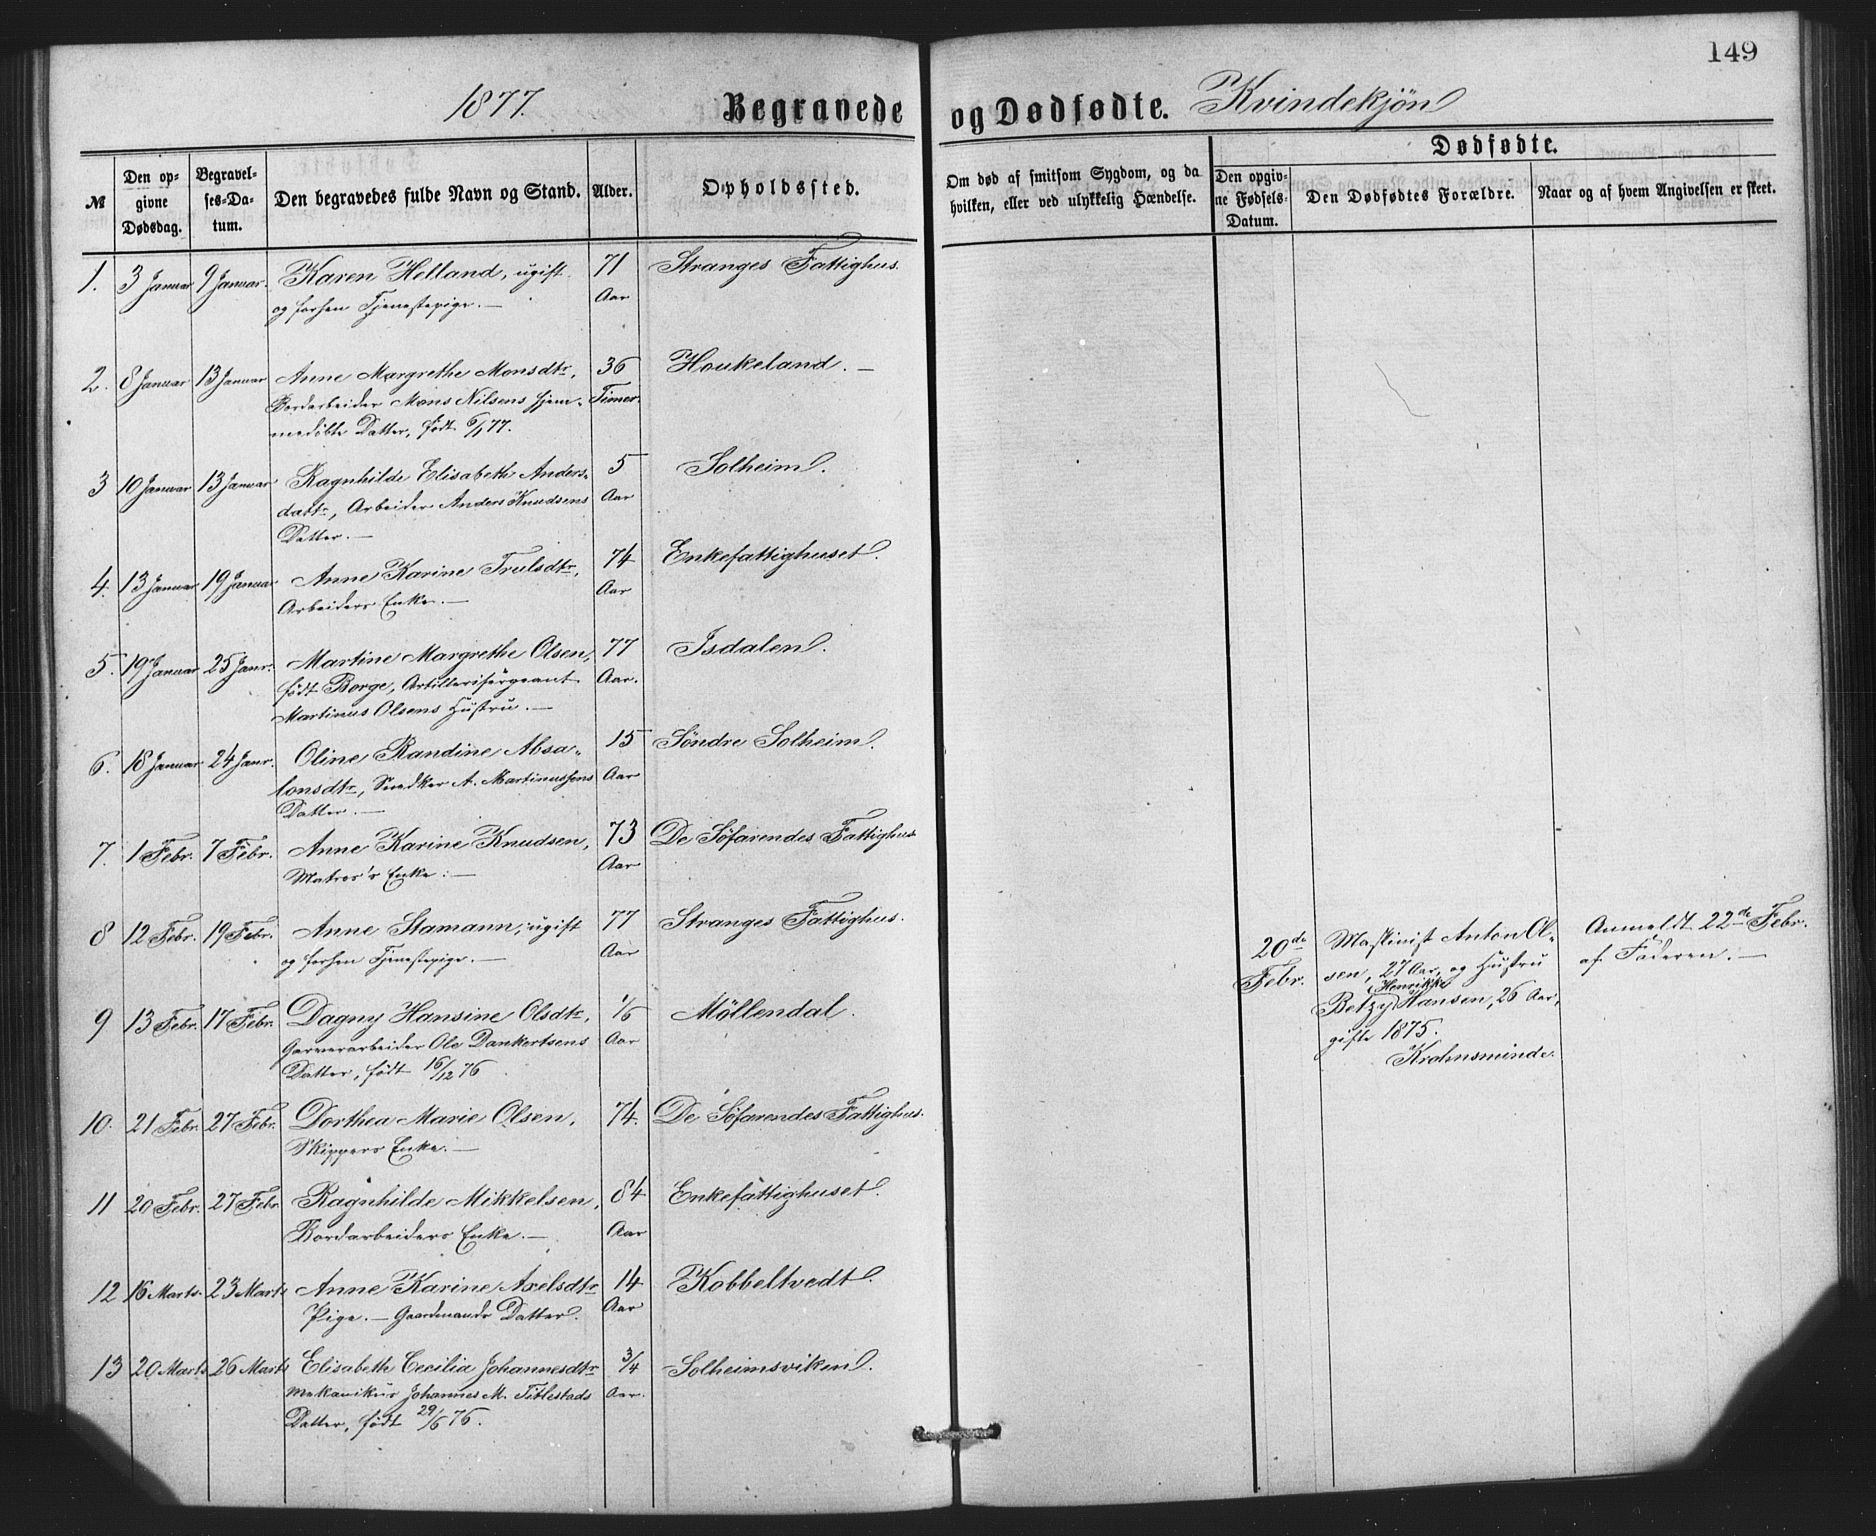 149
1877. Begravede og Dødfødte. Kvindekjøn
№
Den opgivne Dødsdag.
Begravelses-Datum.
Den begravedes fulde Navn og Stand.
Alder.
Opholdssted.
Om død af smitsom Sygdom, og da hvilken, eller ved ulykkelig Hændelse.
Dødfødte.
Den opgivne Fødsels-Datum.
Den Dødfødtes Forældre.
Naar og af hvem Angivelsen er skeet.
1. 3 Januar 9 Januar. Karen Helland, ugift 71 Stranges Fattighus.
og forhen Tjenestepige. — Aar
2. 8 Januar 13 Januar Anne Margrethe Monsdtr, 36 Houkeland. —
Bordarbeider Mons Nilsens hjem- Timer.
medøbte Datter, født 6/1 77.
3 10 Januar 13 Januar Ragnhilde Elisabeth Anders- 5 Solheim.
datr, Arbeider Anders Knudsens Aar
Datter. —
4. 13 Januar 19 Januar Anne Karine Trulsdtr, 74 Enkefattighuset.
Arbeiders Enke. — Aar
5. 19 Januar 25 Janr. Martine Margrethe Olsen, 77 Isdalen.
født Borge, Artillerisergeant Aar.
Martinus Olsens Hustru. —
6. 18 Januar 24 Janr. Oline Randine Absa- 15 Søndre Solheim.
lonsdtr, Snedker A. Martinussens Aar
Datter. —
7. 1 Febr. 7 Febr. Anne Karine Knudsen, 73 De Søfarendes Fattighus
Matros's Enke. — Aar
8 12 Febr. 19 Febr. Anne Stamann, ugift 77 Stranges Fattighus.
og forhen Tjenestepige. — Aar
9 13 Febr. 17 Febr. Dagny Hansine Olsdtr, 1/6 Möllendal.
Garverarbeider Ole Dankertsens Aar
Datter, født 16/12 76.
10. 21 Febr. 27 Febr. Dorthea Marie Olsen, 74. De Søfarendes Fattighus.
Skippers Enke. —
11 20 Febr. 27 Febr. Ragnhilde Mikkelsen, 84 Enkefattighuset.
Bordarbeiders Enke. — Aar
12 16 Marts. 23 Marts Anne Karine Axelsdtr 14 Kobbeltvedt.
Pige. — Gaardmands Datter. Aar
13 20 Marts 26 Marts Elisabeth Cecilia Johannesdtr 3/4 Solheimsviken.
Mekanikus Johannes M. Titlestads Aar.
Datter, født 29/6 76.
20de Febr.
Maskinist Anton Ol-
sen, 27 Aar, og Hustru
Henrikke
Betzy Hansen, 26 Aar,
gifte 1875.
Krohnsminde.
Anmeldt 22de Febr.
af Faderen. —